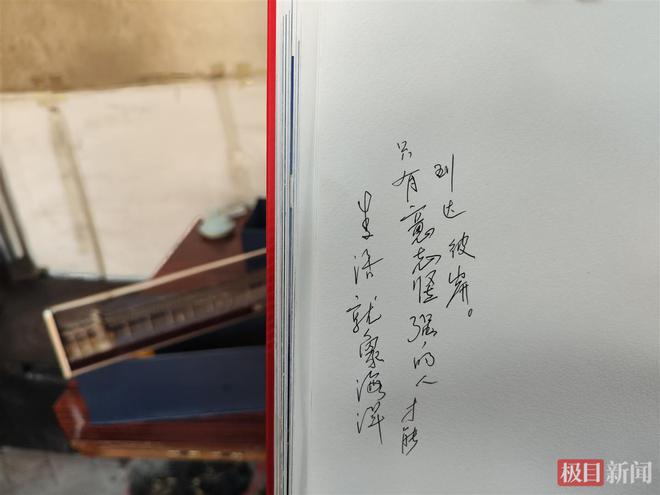 生活就象海洋
只有意志坚强的人才能
到达彼岸。
极目新闻